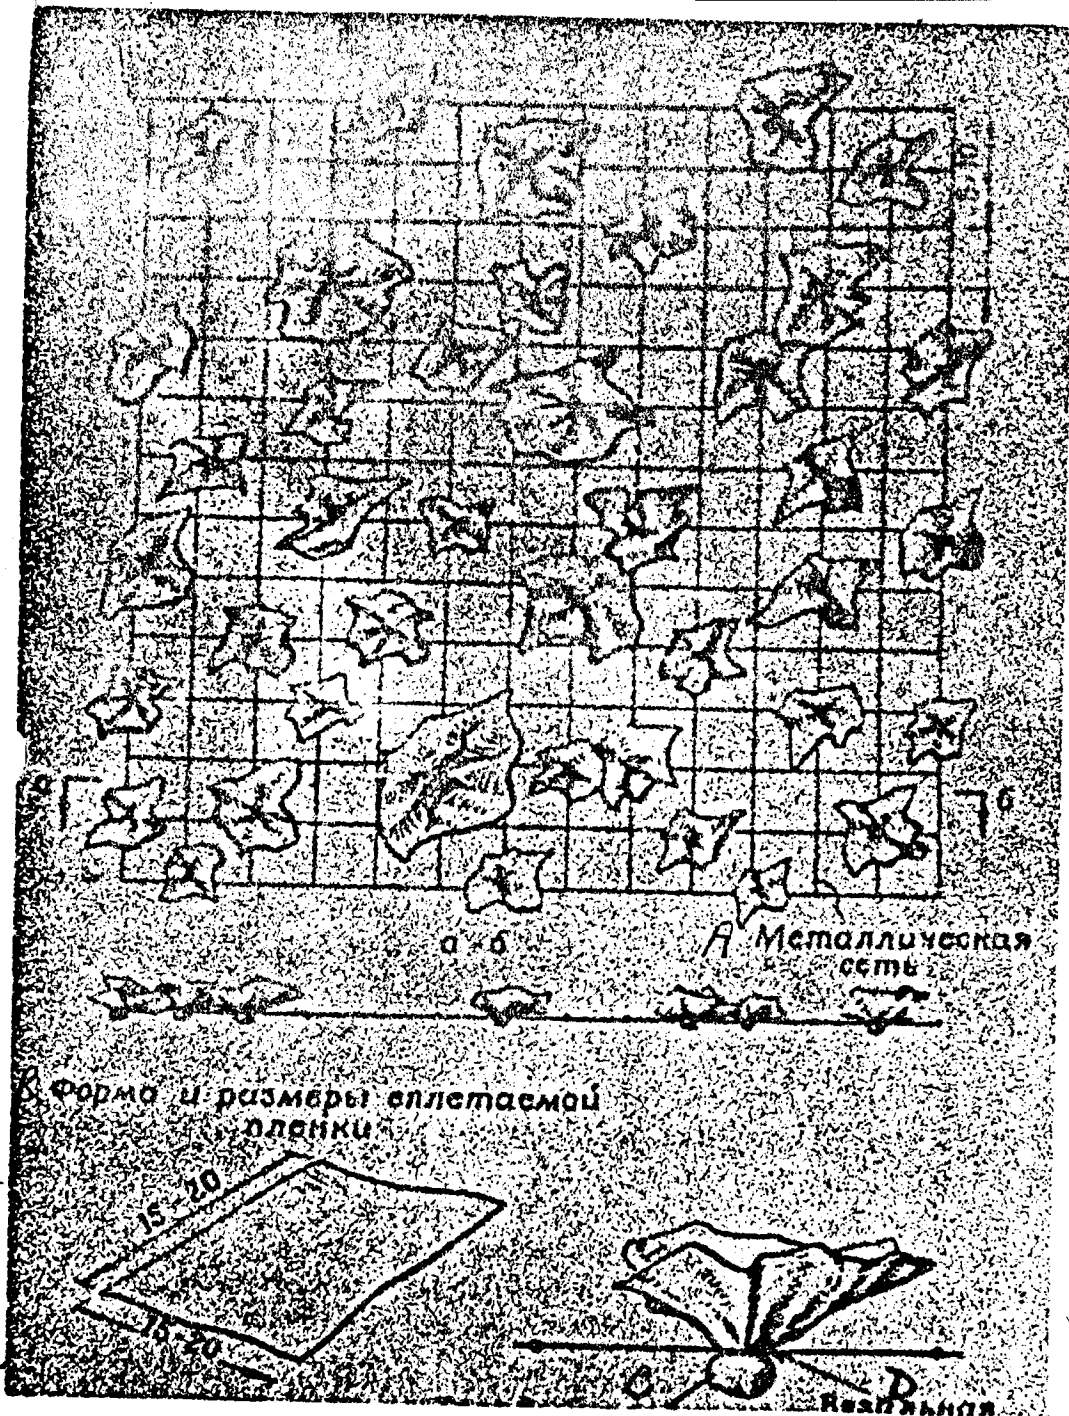 5-10
а
б
а - б
A Металлическая
сеть
B Форма и размеры вплетаемой
пленки
15-20
15-20
C
D
Вязальная